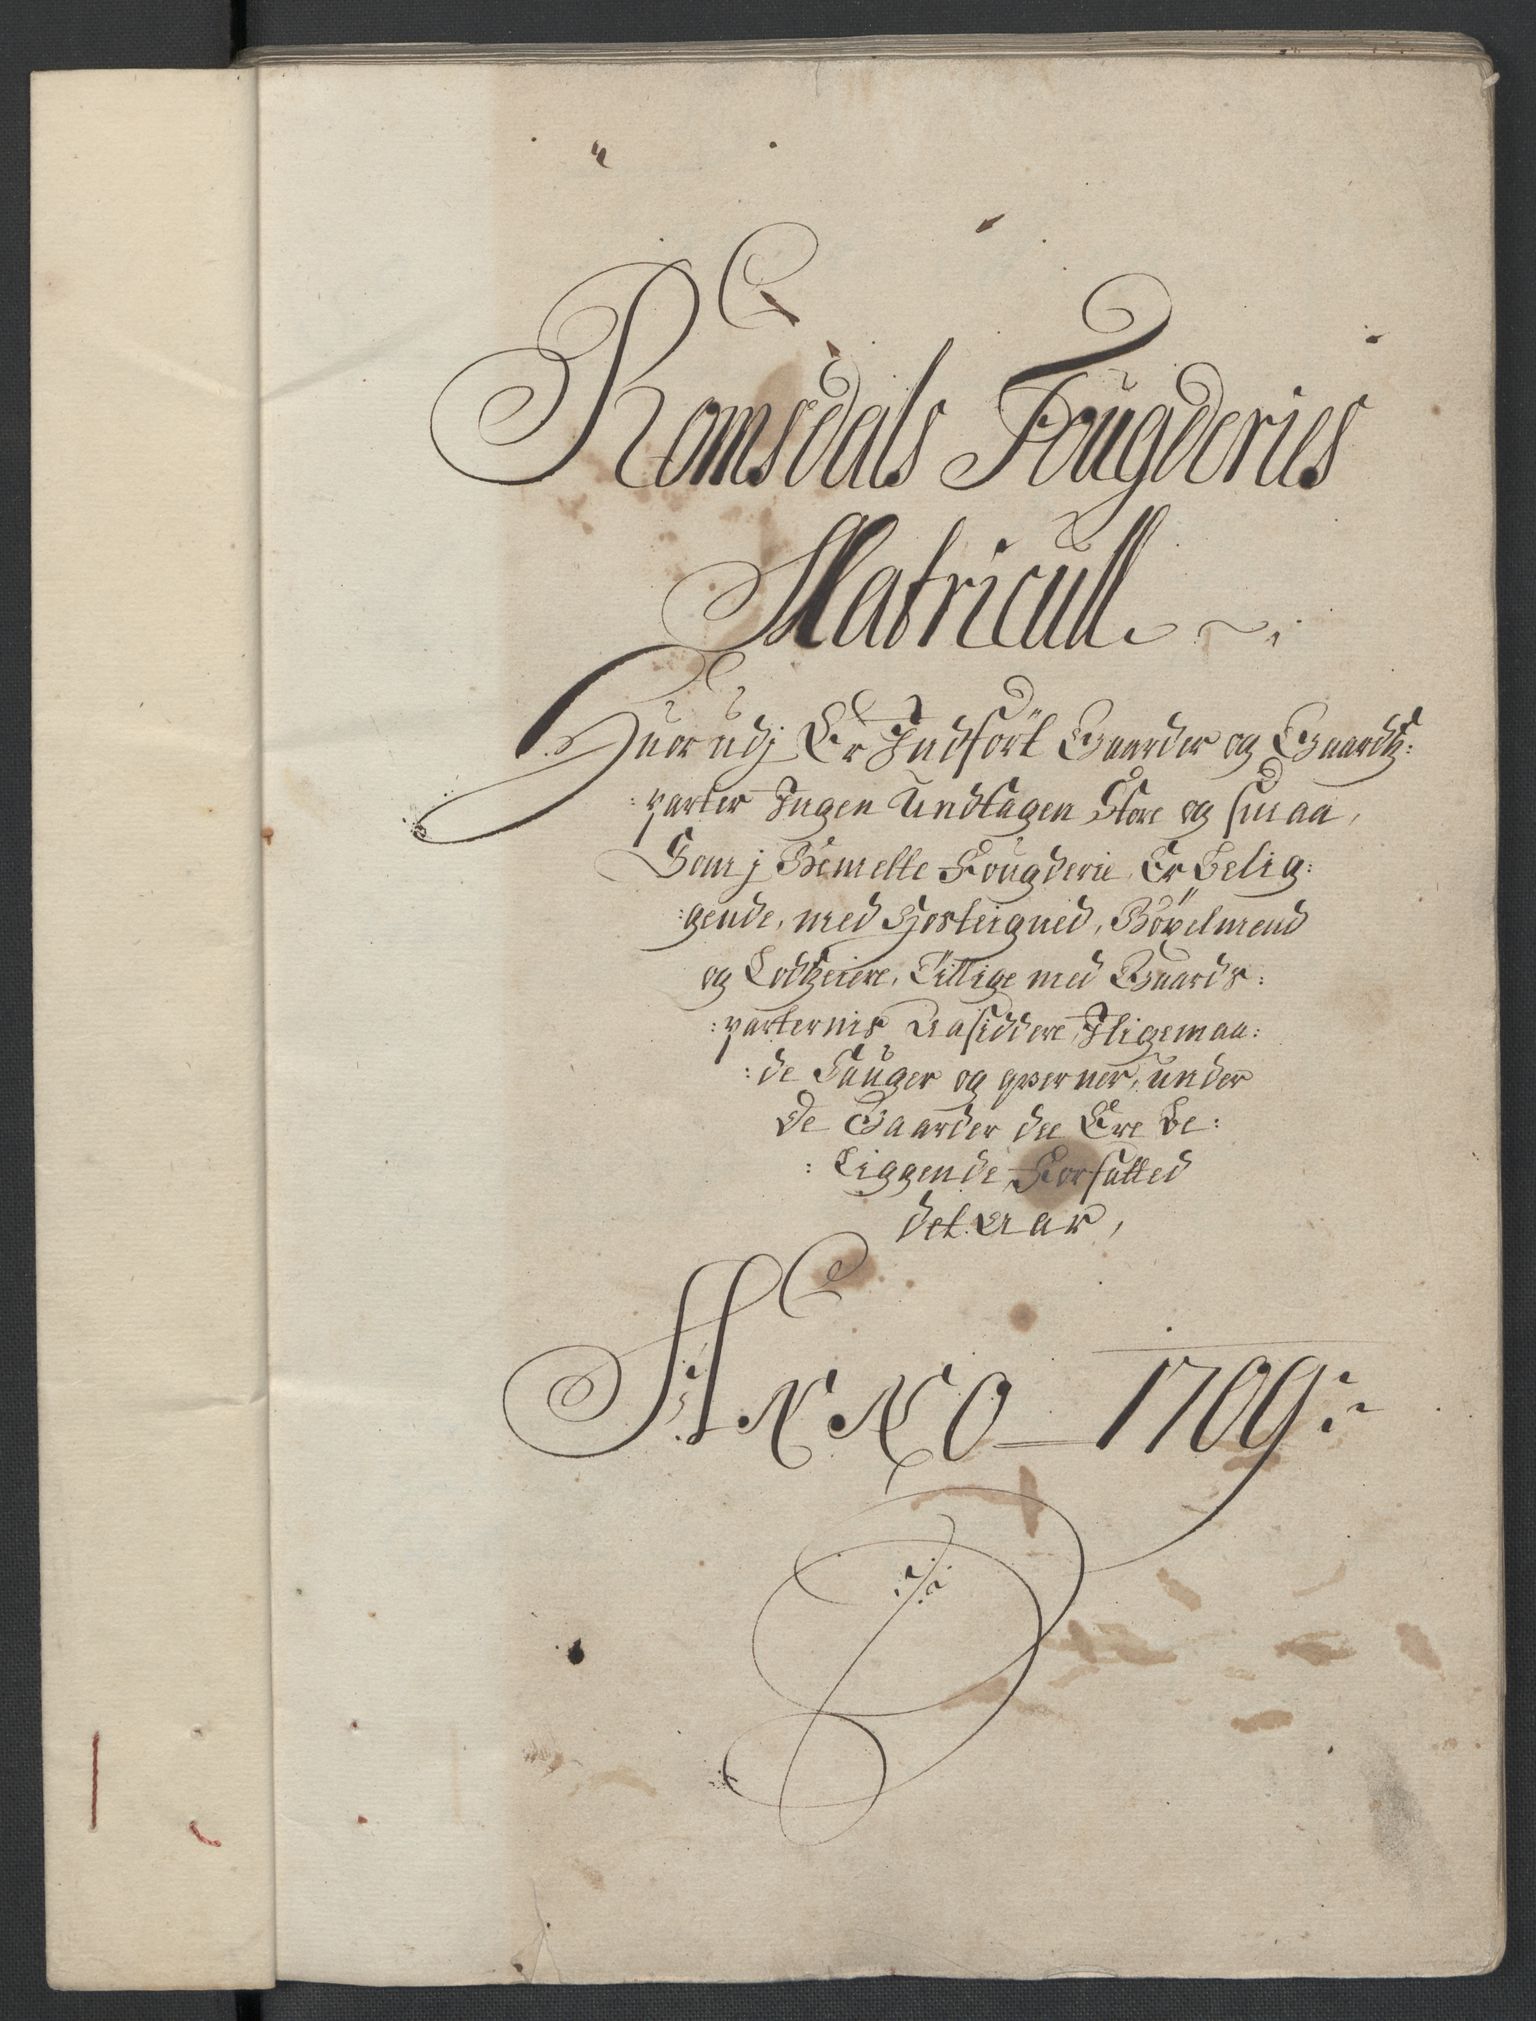 Romsdals Fougderies
Matricull
Huorudj Er Indført Gaarder og Gaardtz:
:parter Ingen Undtagen Store og smaa,
Som j Bemelte Fougderie Er Belig:
:gende, med Hosteigned, Böxelmend
og Lodtzeiere, Tillige med Gaards:
:parternis Aasiddere, Iligemaa:
:de Sauger og qverner, under
De Gaarder die Ere Be:
:Liggende, Forfatted
det Aar,
ANNO 1709: